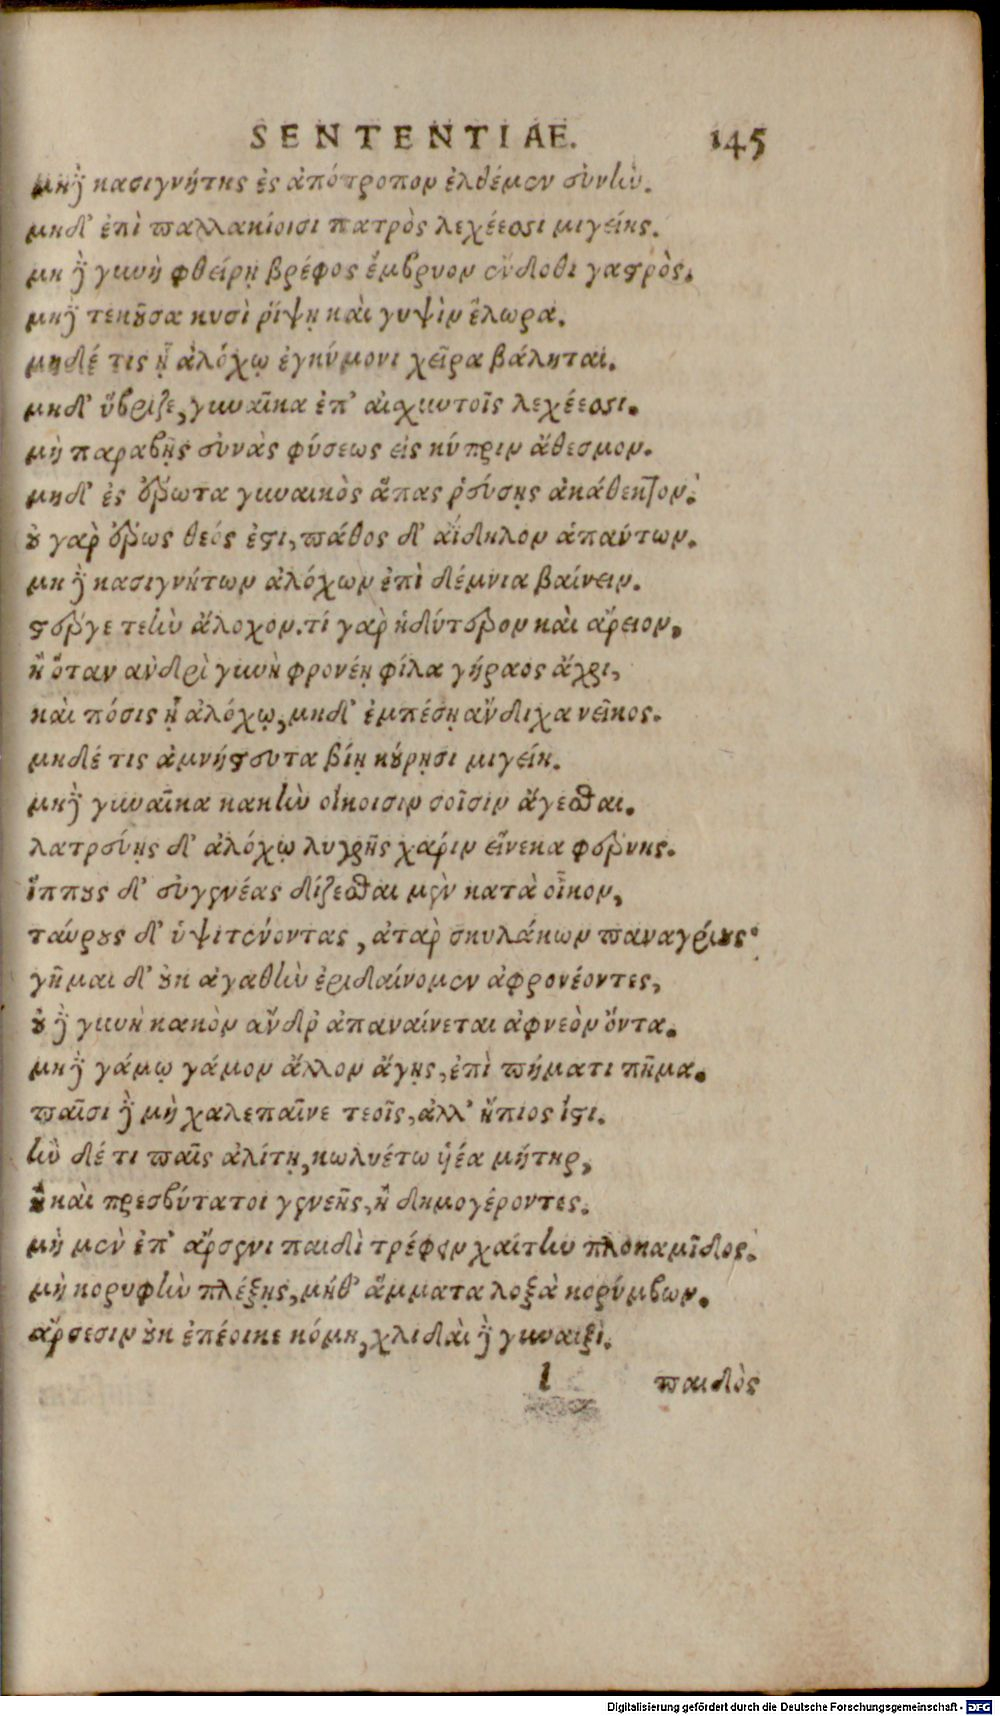 SENTENTIAE. 145
μηδὲ κασιγνήτης ἐς ἀπότροπον ἐλθέμεν εὐνήν.
μηδ' ἐπὶ παλλακίοισι πατρὸς λεχέεσσι μιγείης.
μηδὲ γυνὴ φθείρῃ βρέφος ἔμβρυον ἔνδοθι γαστρὸς.
μηδὲ τεκοῦσα κυσὶ ῥίψῃ καὶ γυψὶν ἕλωρα.
μηδέ τις ᾗ ἀλόχῳ ἐγκύμονι χεῖρα βάληται.
μηδ' ὕβριζε, γυναῖκα ἐπ' αἰσχυντοῖς λεχέεσσι.
μὴ παραβῇς εὐνὰς φύσεως εἰς κύπριν ἄθεσμον.
μηδ' ἐς ἔρωτα γυναικὸς ἅπας ῥεύσῃς ἀκάθεκτον.
οὐ γὰρ ἔρως θεός ἐστι, πάθος δ' ἀΐδηλον ἁπάντων.
μηδὲ κασιγνήτων ἀλόχων ἐπὶ δέμνια βαίνειν.
στέργε τεὴν ἄλοχον. τί γὰρ ἡδύτερον καὶ ἄρειον,
ἢ ὅταν ἀνδρὶ γυνὴ φρονέῃ φίλα γήραος ἄχρι,
καὶ πόσις ᾗ ἀλόχῳ, μηδ' ἐμπέσῃ ἄνδιχα νεῖκος.
μηδέ τις ἀμνήστευτα βίῃ κούρῃσι μιγείη.
μηδὲ γυναῖκα κακὴν οἴκοισιν σοῖσιν ἄγεσθαι.
λατρεύῃς δ' ἀλόχῳ λυγρῆς χάριν εἵνεκα φερνης.
ἵππους δ' εὐγενέας δίζεσθαι μὲν κατὰ οἶκον,
ταύρους δ' ὑψιτένοντας, ἀτὰρ σκυλάκων παναγρίους.
γῆμαι δ' οὐκ ἀγαθὴν ἐριδαίνομεν ἀφρονέοντες,
οὐδὲ γυνὴ κακὸν ἄνδρ' ἀπαναίνεται ἀφνεὸν ὄντα.
μηδὲ γάμῳ γάμον ἄλλον ἄγῃς, ἐπὶ πήματι πῆμα.
παῖσι δὲ μὴ χαλεπαῖνε τεοῖς, ἀλλ' ἤπιος ἴστι.
ἢν δέ τι παῖς ἀλίτῃ, κωλυέτω ὑϊέα μήτηρ,
ἢ καὶ πρεσβύτατοι γενεῆς, ἢ δημογέροντες.
μὴ μὲν ἐπ' ἄρσενι παιδὶ τρέφειν χαίτην πλοκαμῖδος.
μὴ κορυφὴν πλέξῃς, μήθ' ἅμματα λοξὰ κορύμβων.
ἄρσεσιν οὐκ ἐπέοικε κόμη, χλιδαὶ δὲ γυναιξὶ.
l παιδὸς
Digitalisierung gefördert durch die Deutsche Forschungsgemeinschaft - DFG